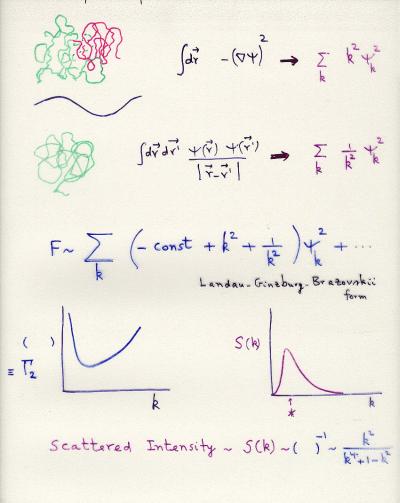 ∫dr⃗ -(∇Ψ)² → Σ_k k² Ψ_k²
∫dr⃗ dr⃗' Ψ(r⃗) Ψ(r⃗') / |r⃗-r⃗'| → Σ_k 1/k² Ψ_k²
F ~ Σ_k (- const + k² + 1/k²) Ψ_k² + ...
Landau-Ginzburg-Brazovskii
form
( )
≡ Γ₂
k
S(k)
k
↑
*
Scattered Intensity ~ S(k) ~ ( )⁻¹ ~ k² / k⁴+1-k²